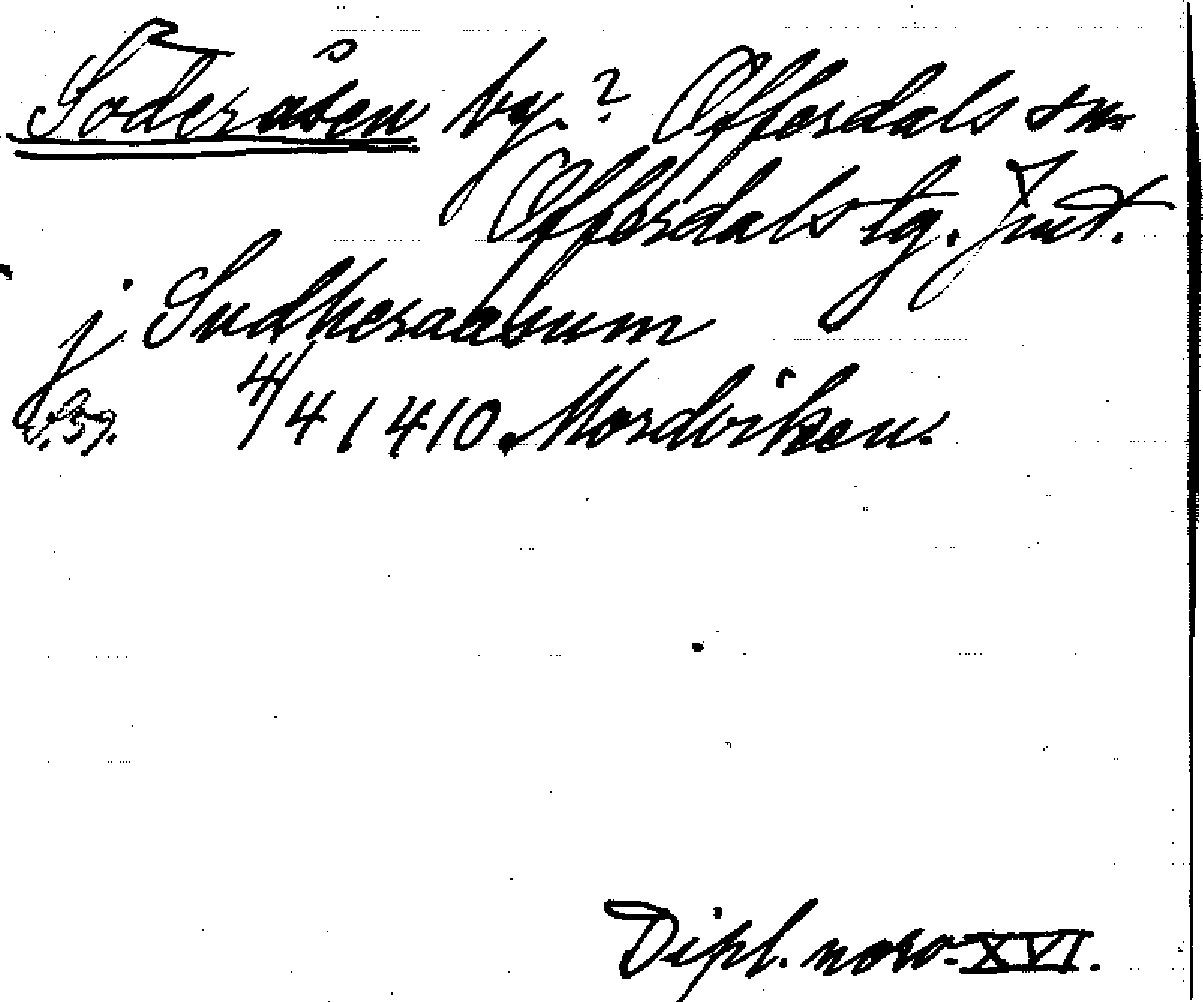 Söderåsen by.? Offerdals sn.
Offerdals tg. Jmt.
j Sudheraasum
s. 59. 4/4 1410. Mordviken.
Dipl. norv. XVI.